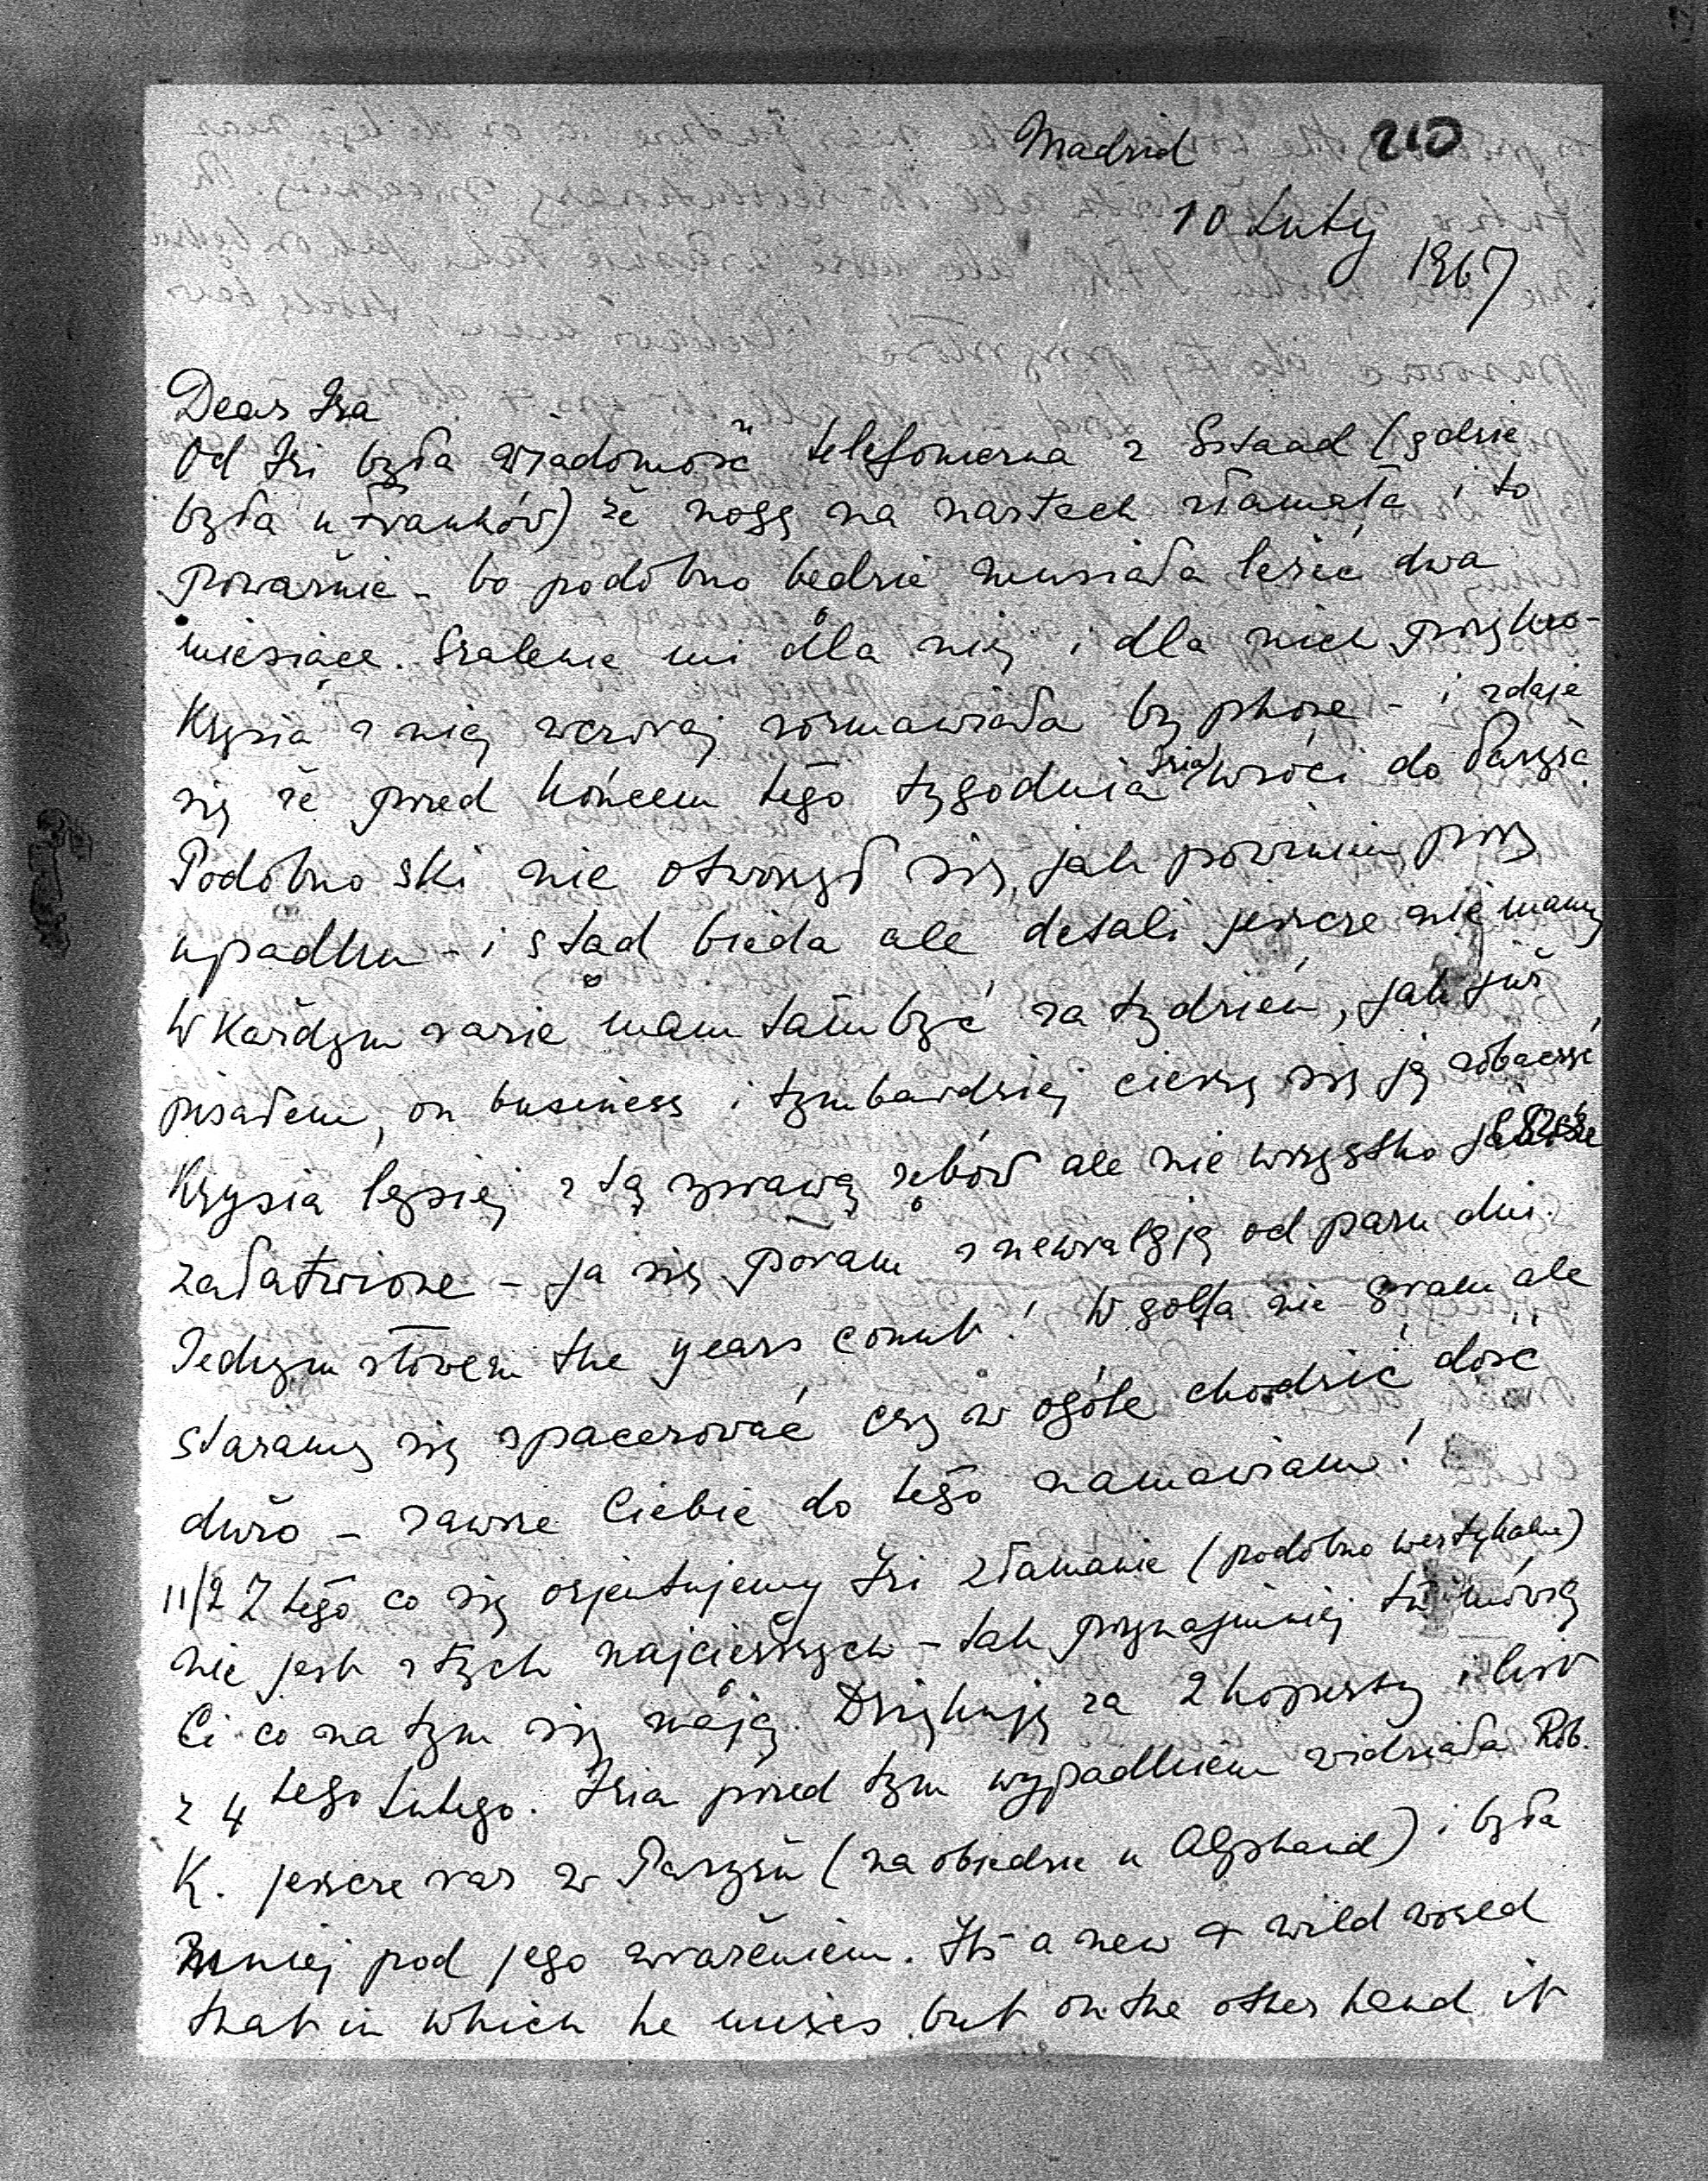 Madrid 210
10 Luty
1967
Dear Iza
Od Isi była wiadomość telefoniczna z Gstaad (gdzie
była u Franków) że nogę na nartach złamała i to
poważnie - bo podobno będzie musiała leżeć dwa
miesiące. Szalenie mi dla niej i dla nich przykro -
Krysia z nią wczoraj rozmawiała by phone - i zdaje
się że przed końcem tego tygodnia Isia wróci do Paryża
Podobno ski nie otworzył się jak powinien przy
upadku - i stąd bieda ale detali jeszcze nie mamy
W każdym razie mam tam być za tydzień, jak już
pisałem, on business i tymbardziej cieszę się ją zobaczyć
Krysia lepiej z tą sprawą zębów ale nie wszystko jeszcze
załatwione - ja się param z newralgją od paru dni.
Jednym słowem the years count! W golfa nie gram ale
staramy się spacerować czy w ogóle chodzić dość
dużo - zawsze Ciebie do tego namawiam!
11/2 Z tego co się orjentujemy Isi złamanie (podobno wertykalne)
nie jest z tych najcięższych - tak przynajmniej tu mówią
Ci co na tym się znają. Dziękuję za 2 koperty i list
z 4 tego Lutego. Isia przed tym wypadkiem widziała Rob.
K. jeszcze raz w Paryżu (na obiedzie u Alphand) i była
mniej pod jego wrażeniem. Its a new & wild world
that in which he mixes but on the other hand it